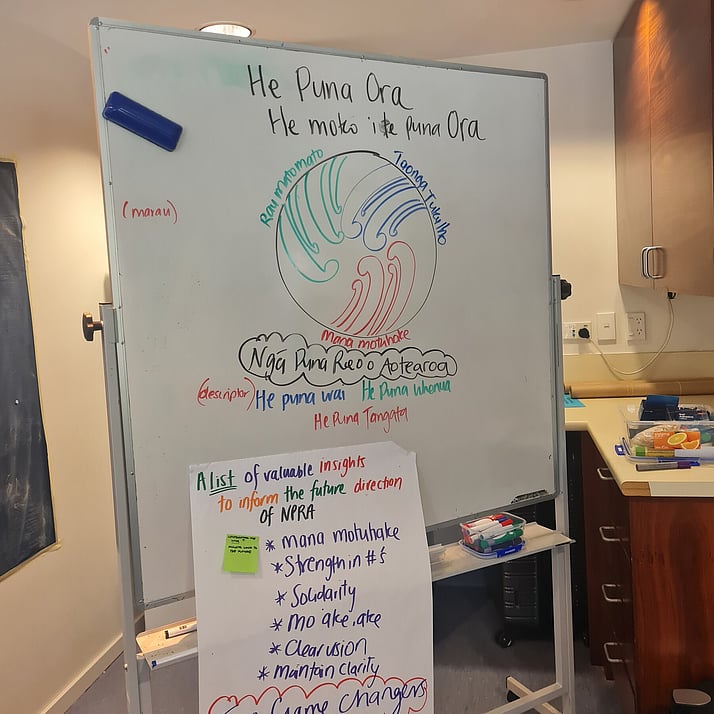 He Puna Ora
He moko i te puna Ora
Rau matomato
Taonga Tukuiho
(marau)
mana motuhake
Nga Puna Reo o Aotearoa
(descriptor)
He puna wai He Puna whenua
He Puna Tangata
A list of valuable insights
to inform the future direction
of NPRA
* mana motuhake
* Strength in #'s
* Solidarity
* Mo ake, ake
* Clear vision
* maintain clarity
Game Changers